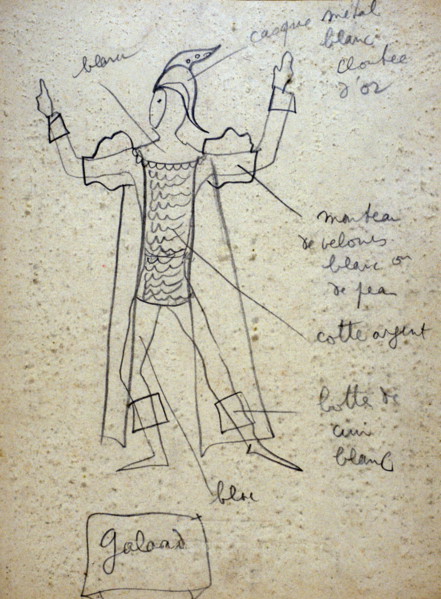 blanc
casque metal
blanc
cloutee
d'or
manteau
de velours
blanc ou
de peau
cotte argent
botte de
cuir
blanc
blanc
Galaad